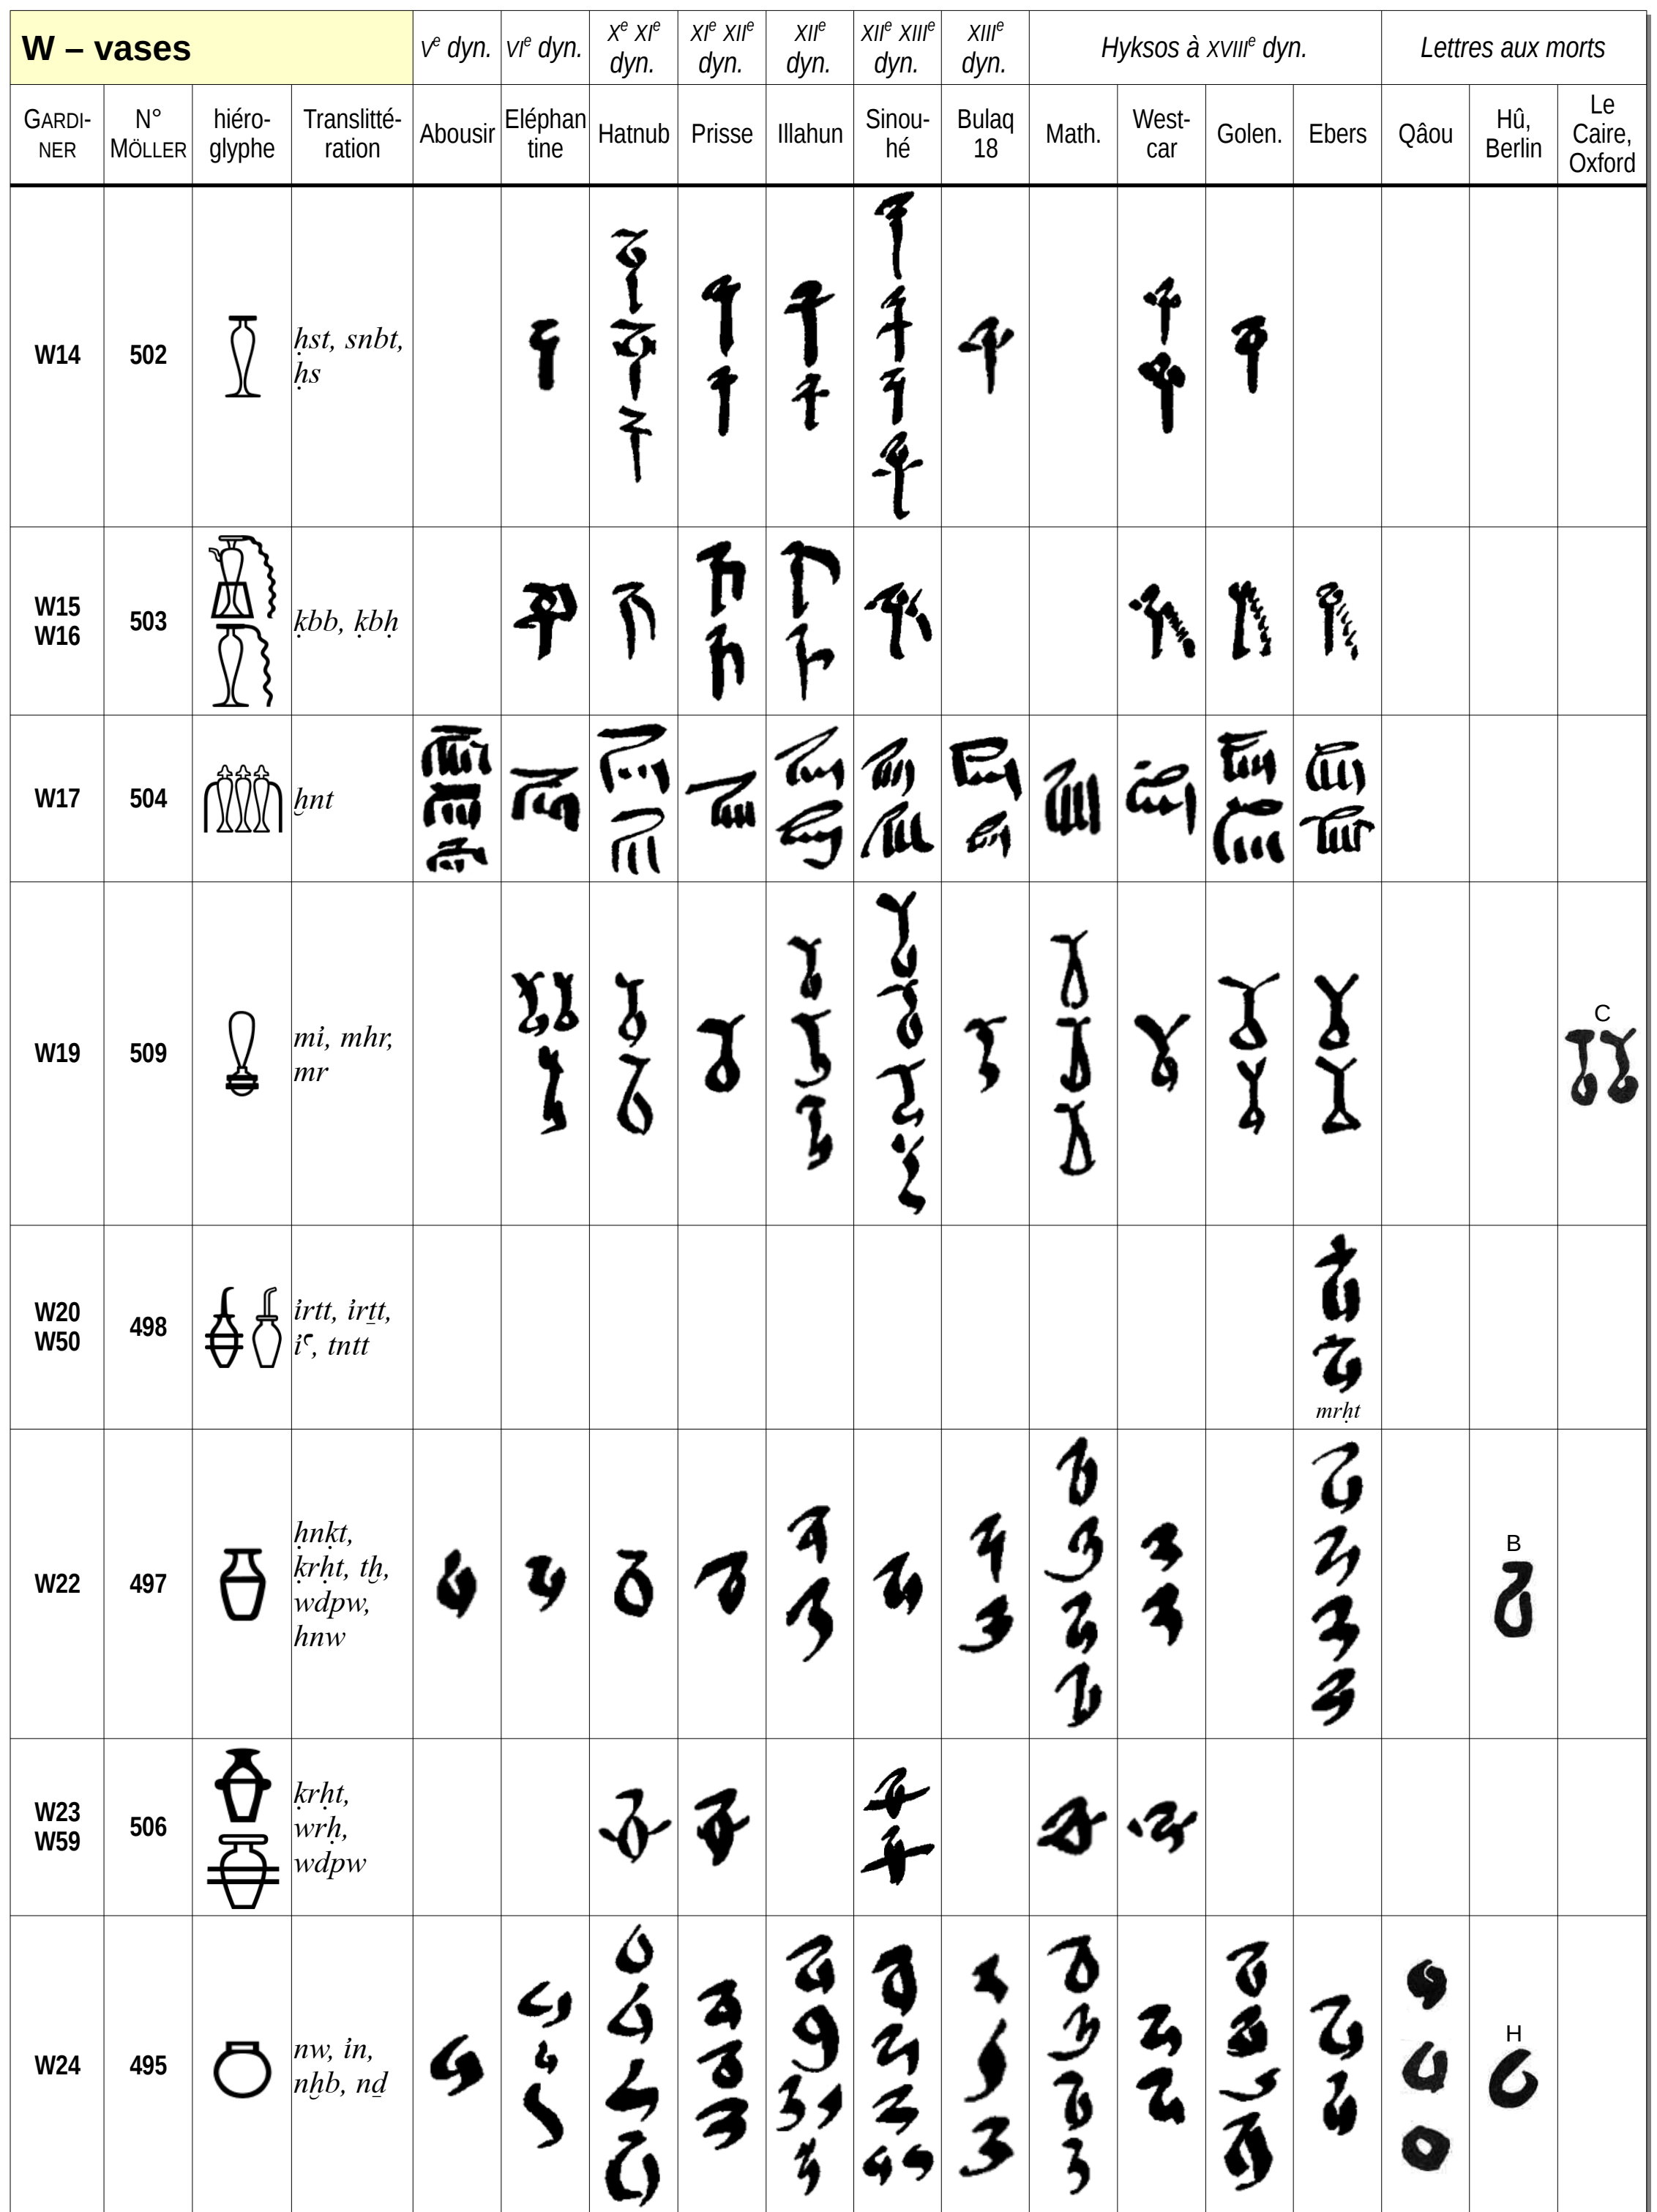 W – vases
Vᵉ dyn.
VIᵉ dyn.
Xᵉ XIᵉ
dyn.
XIᵉ XIIᵉ
dyn.
XIIᵉ
dyn.
XIIᵉ XIIIᵉ
dyn.
XIIIᵉ
dyn.
Hyksos à XVIIIᵉ dyn.
Lettres aux morts
GARDI-
NER
N°
MÖLLER
hiéro-
glyphe
Translitté-
ration
Abousir
Eléphan
tine
Hatnub
Prisse
Illahun
Sinou-
hé
Bulaq
18
Math.
West-
car
Golen.
Ebers
Qâou
Hû,
Berlin
Le
Caire,
Oxford
W14
502
ḥst, snbt,
ḥs
W15
W16
503
ḳbb, ḳbḥ
W17
504
ḫnt
W19
509
mỉ, mhr,
mr
C
W20
W50
498
ỉrtt, ỉrṯt,
ỉꜥ, tntt
mrḥt
W22
497
ḥnḳt,
ḳrḥt, tḫ,
wdpw,
hnw
B
W23
W59
506
ḳrḥt,
wrḥ,
wdpw
W24
495
nw, ỉn,
nḫb, nḏ
H